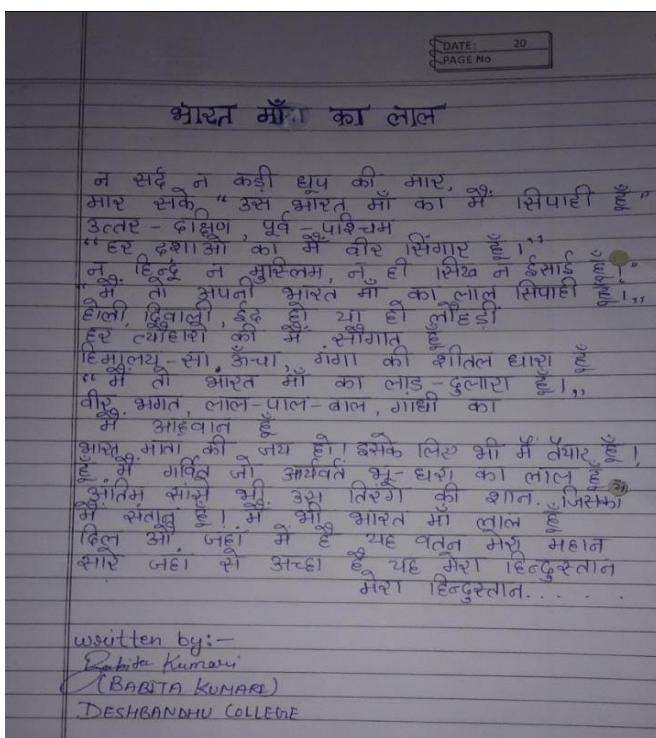 DATE: 20
PAGE No
भारत माँ का लाल
न सर्द न कड़ी धूप की मार,
मार सके "उस भारत माँ का मैं सिपाही हूँ"
उत्तर - दक्षिण, पूर्व - पश्चिम
"हर दशाओं का मैं वीर सिंगार हूँ।"
न हिन्दू न मुस्लिम, न ही सिख न ईसाई हूँ।"
"मैं तो अपनी भारत माँ का लाल सिपाही हूँ।,,
होली, दिवाली, ईद हो या हो लोहड़ी
हर त्योहारों की मैं सौगात हूँ
हिमालय - सा ऊँचा, गंगा की शीतल धारा हूँ
"मैं तो भारत माँ का लाड - दुलारा हूँ।,,
वीर भगत, लाल - पाल - बाल, गांधी का
मैं आह्वान हूँ
भारत माता की जय हो! इसके लिए भी मैं तैयार हूँ!
हूँ मैं गर्वित जो आर्यवर्त भू - धरा का लाल हूँ
अंतिम सांसे भी उस तिरंगे की शान. जिसका
मैं संतान हूँ! मैं भी भारत माँ लाल हूँ
दिल औ जहां में है यह वतन मेरा महान
सारे जहां से अच्छा है यह मेरा हिन्दुस्तान
मेरा हिन्दुस्तान. . . . . .
written by:-
Babita Kumari
(BABITA KUMARI)
DESHBANDHU COLLEGE